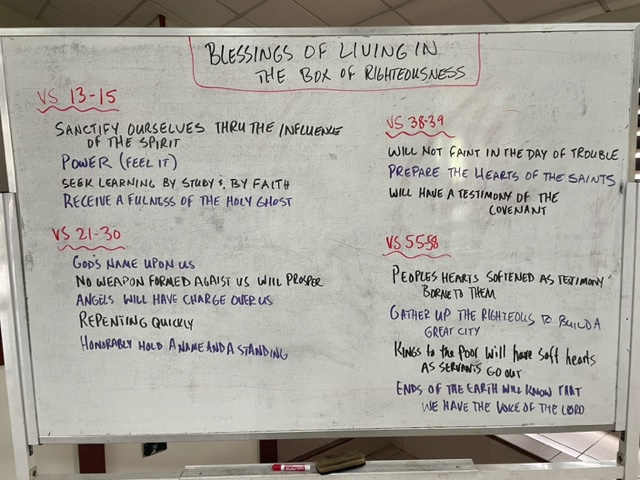 BLESSINGS OF LIVING IN
THE BOX OF RIGHTEOUSNESS
VS 13-15
SANCTIFY OURSELVES THRU THE INFLUENCE
OF THE SPIRIT
POWER (FEEL IT)
SEEK LEARNING BY STUDY & BY FAITH
RECEIVE A FULNESS OF THE HOLY GHOST
VS 21-30
GOD'S NAME UPON US
NO WEAPON FORMED AGAIST US WILL PROSPER
ANGELS WILL HAVE CHARGE OVER US
REPENTING QUICKLY
HONORABLY HOLD A NAME AND A STANDING
VS 38-39
WILL NOT FAINT IN THE DAY OF TROUBLE
PREPARE THE HEARTS OF THE SAINTS
WILL HAVE A TESTIMONY OF THE
COVENANT
VS 55-58
PEOPLES HEARTS SOFTENED AS TESTIMONY
BORNE TO THEM
GATHER UP THE RIGHTEOUS TO BUILD A
GREAT CITY
KINGS to the Poor will have soft hearts
AS SERVANTS GO OUT
ENDS OF THE EARTH WILL KNOW THAT
WE HAVE THE VOICE OF THE LORD